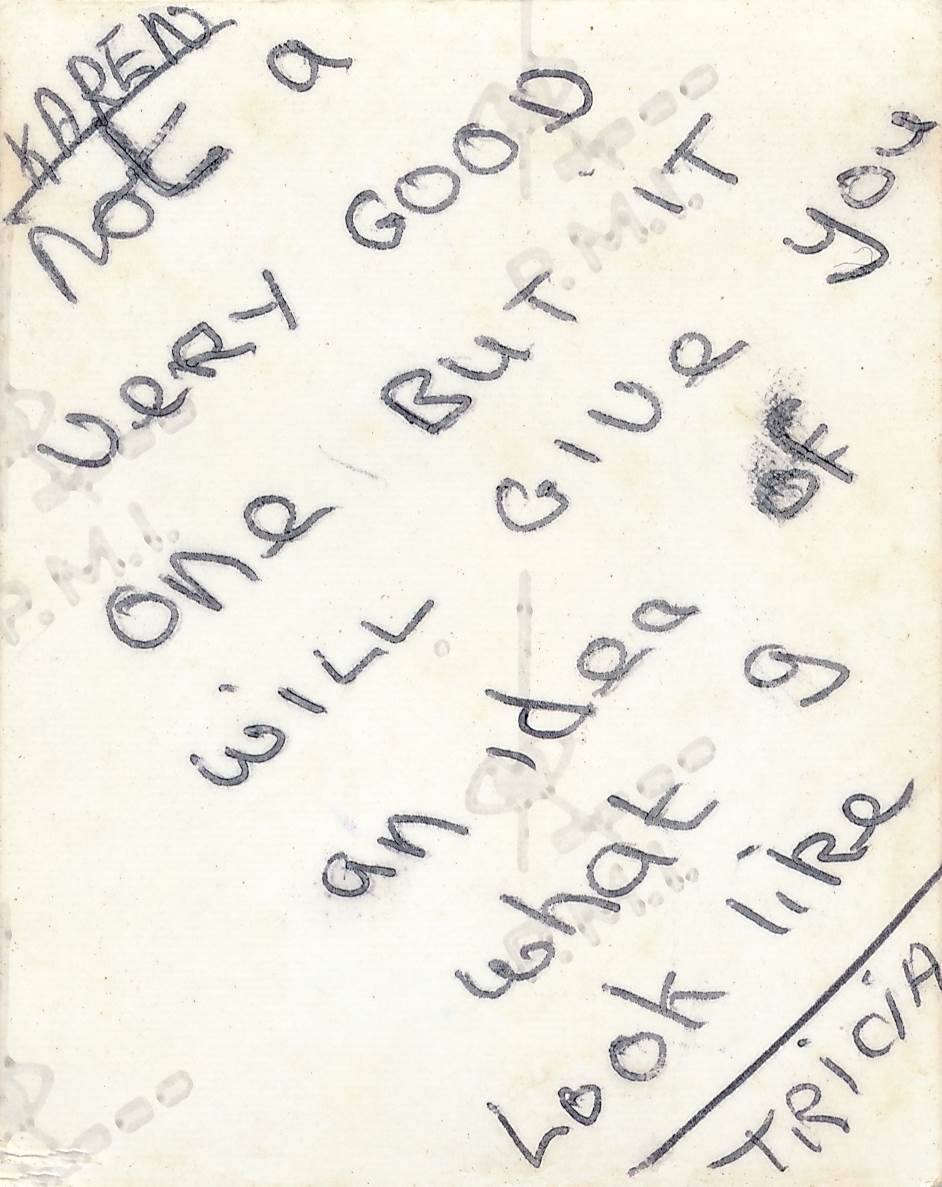 KAREN
not a
VeRY GOOD
one, BUT IT
WiLL GIVe you
an idea OF
what g
Look like
TRiCiA
P.M.I.
P.M.I.
P.M.I.